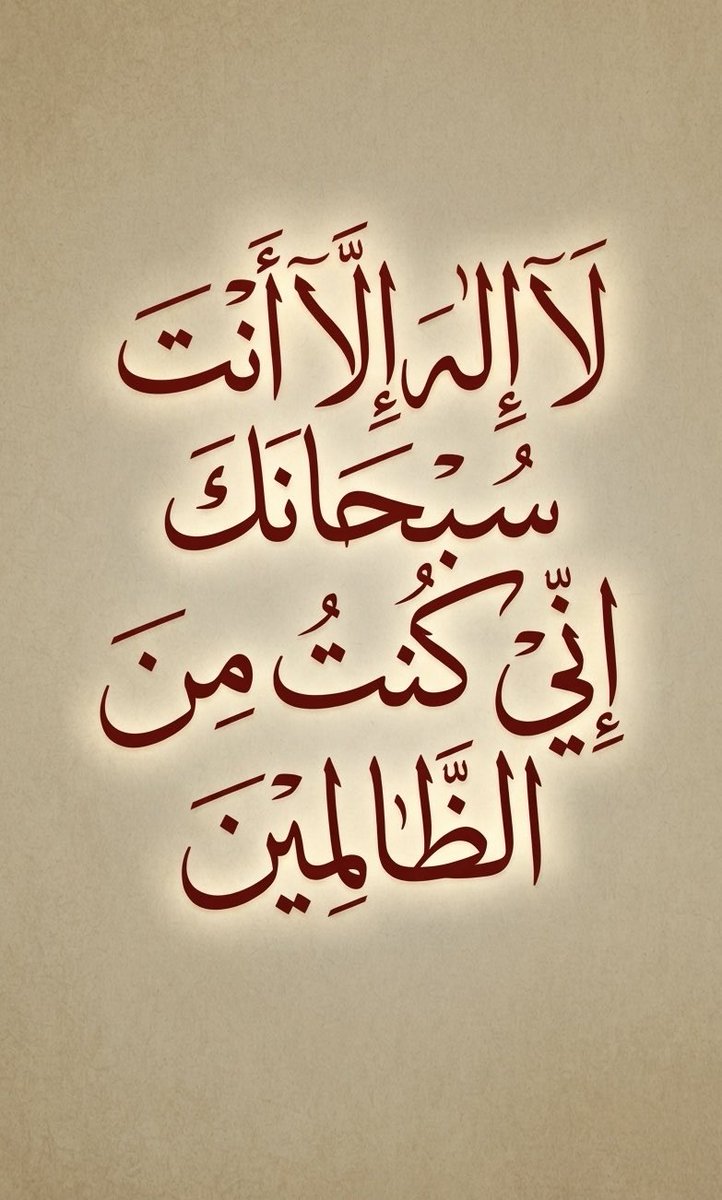 لَآ إِلٰهَ إِلَّآ أَنْتَ
سُبْحَانَكَ
إِنِّيْ كُنتُ مِنَ
الظَّالِمِيْنَ